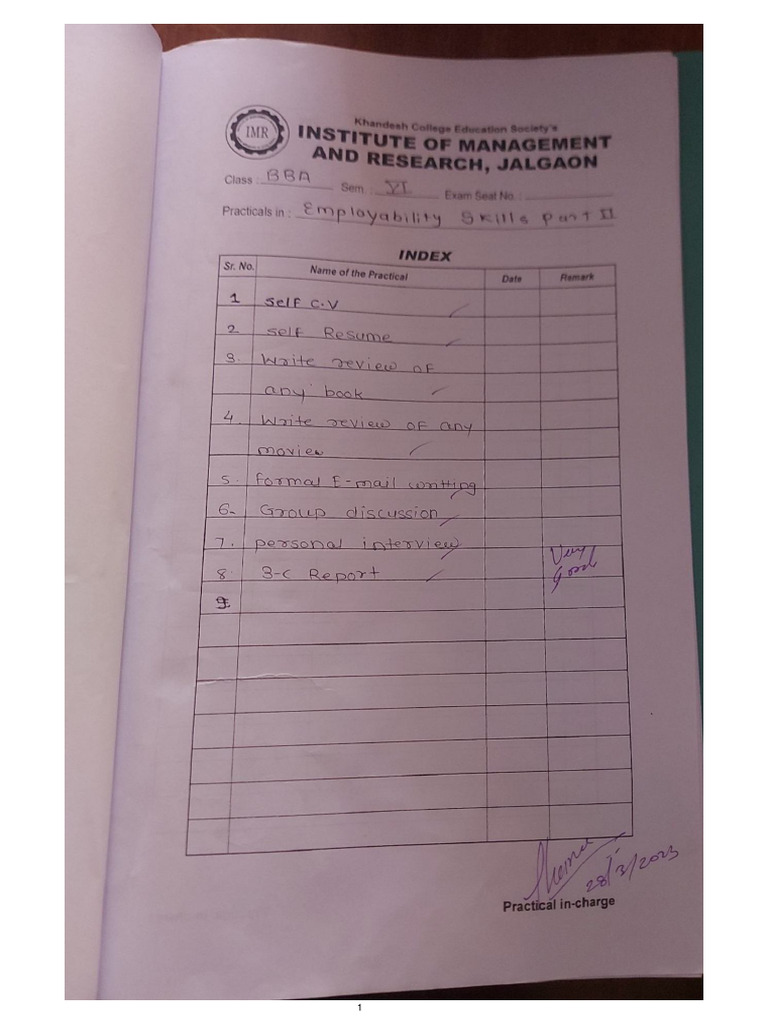 Khandesh College Education Society's
IMR
INSTITUTE OF MANAGEMENT
AND RESEARCH, JALGAON
Class : BBA Sem : VI Exam Seat No :
Practicals in : Employability Skills part II
INDEX
Sr. No. Name of the Practical Date Remark
1 Self C.V
2 Self Resume
3. Write review of
any book
4. Write review of any
movie
5. Formal E-mail
6- Group discussion
7. personal interview
Very
8. 3-C Report
Good
9
28/3/2023
Practical in-charge
1